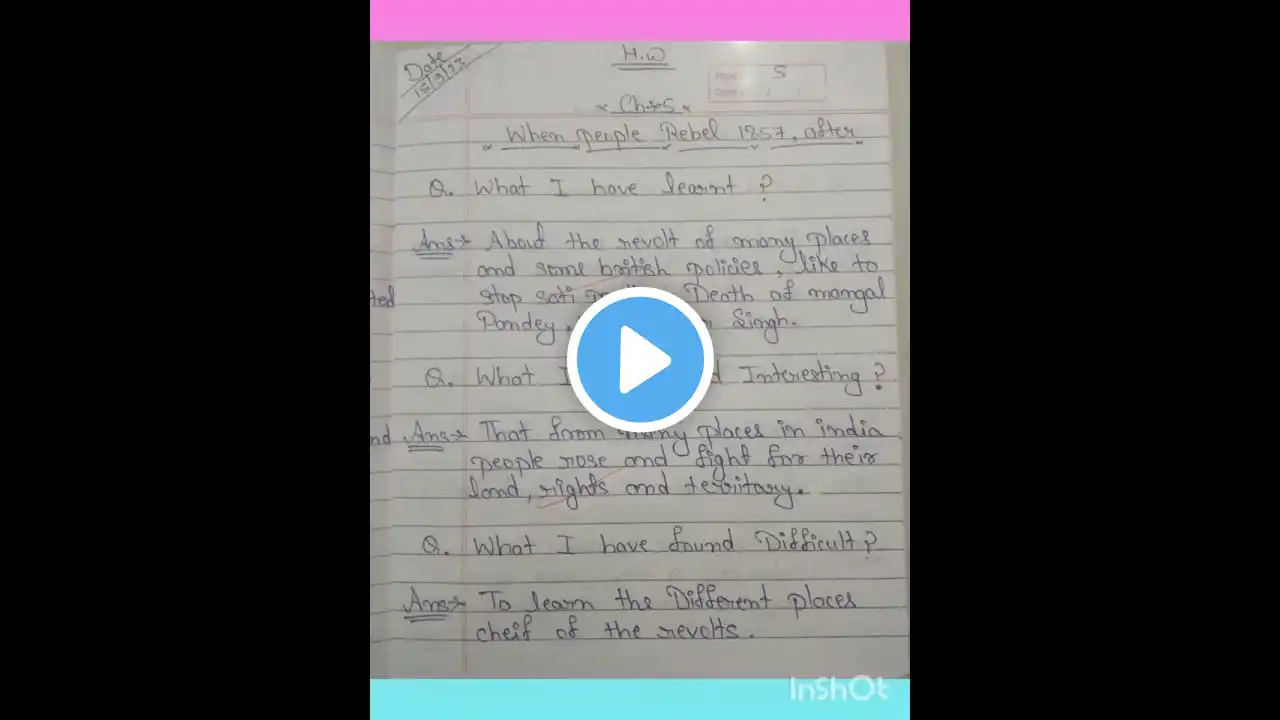 H.W
Date
15/3/23
Page: 5
Date: / /
Ch-5
When people Rebel 1857, after
Q. What I have learnt ?
Ans→ About the revolt of many places
and some british policies, like to
ted stop sati Death of mangal
Pandey, Singh.
Q. What I Interesting ?
nd Ans→ That from many places in india
people rose and fight for their
land, rights and territary.
Q. What I have found Difficult ?
Ans→ To learn the Different places
cheif of the revolts.
InShOt